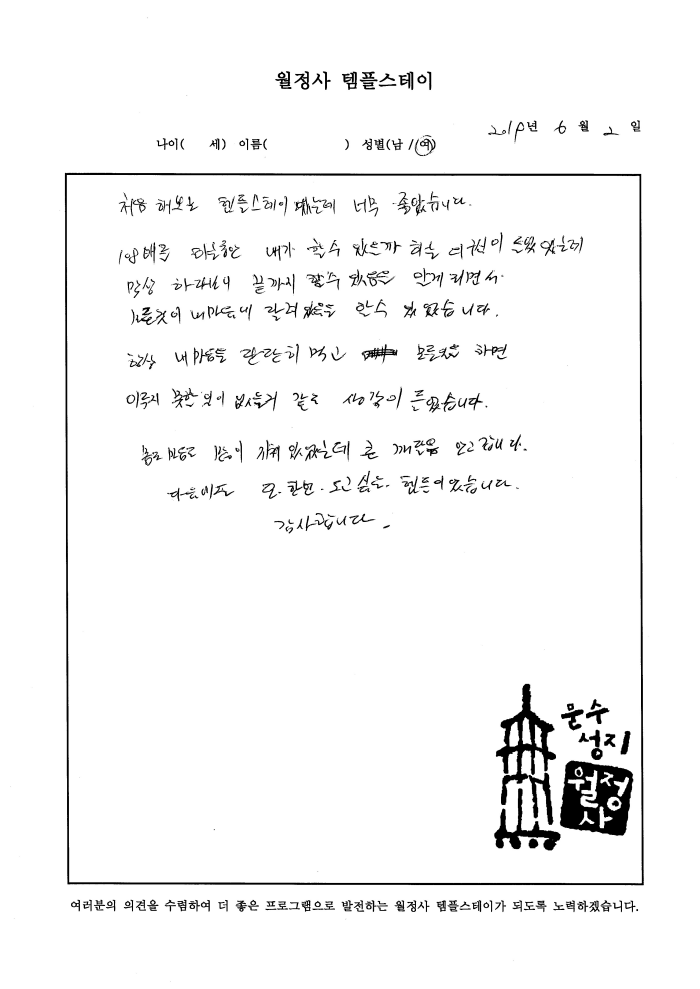 월정사 템플스테이
2019년 6월 2일
나이( 세) 이름( ) 성별(남/여)
처음 해보는 템플스테이 였는데 너무 좋았습니다.
108배를 하는동안 내가 할수 있을까 하는 의구심이 들었었는데
막상 하다보니 끝까지 할수 있음을 알게되면서
모든것이 내마음에 달려 있음을 알수 있었습니다.
항상 내 마음을 단단히 먹고 모든것을 하면
이루지 못한 것이 없을거 같은 생각이 들었습니다.
몸도 마음도 많이 지쳐 있었는데 큰 깨달음 안고 갑니다.
다음에도 또 한번 오고 싶은 템플이었습니다.
감사합니다.
문수
성지
월정
사
여러분의 의견을 수렴하여 더 좋은 프로그램으로 발전하는 월정사 템플스테이가 되도록 노력하겠습니다.